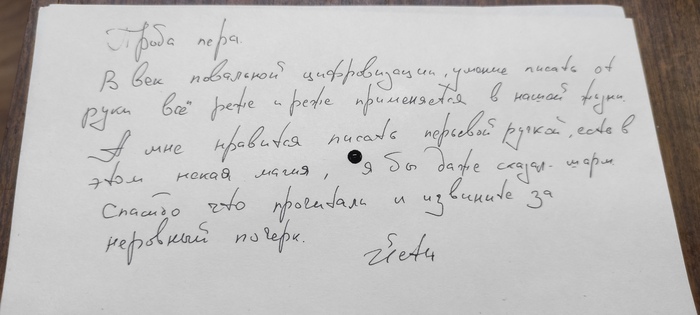 Проба пера.
В век повальной цифровизации, умение писать от
руки всё реже и реже применяется в нашей жизни.
А мне нравится писать перьевой ручкой, есть в
этом некая магия, я бы даже сказал - шарм
Спасибо что прочитали и извините за
неровный почерк.
Йети